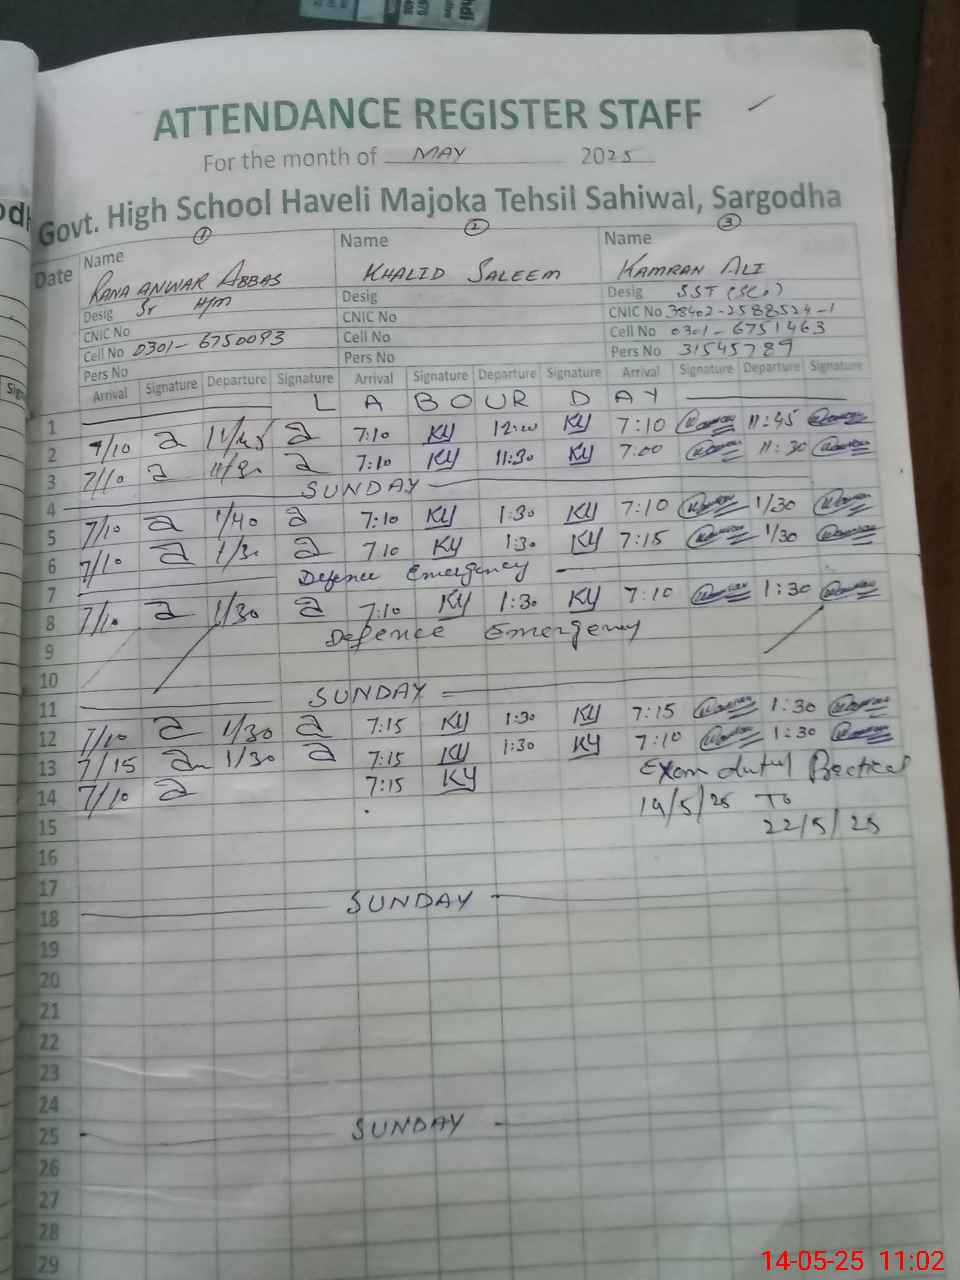 ATTENDANCE REGISTER STAFF
For the month of MAY 2025
Govt. High School Haveli Majoka Tehsil Sahiwal, Sargodha
1 2 3
Date Name Name Name
RANA ANWAR ABBAS KHALID SALEEM KAMRAN ALI
Desig Sr H/M Desig Desig SST (Sc.)
CNIC No CNIC No CNIC No 38402-2588524-1
Cell No 0301-6750093 Cell No Cell No 0301-6751463
Pers No Pers No Pers No 31545789
Arrival Signature Departure Signature Arrival Signature Departure Signature Arrival Signature Departure Signature
1 LABOUR DAY
2 7/10 11/45 7:10 KY 12:00 KY 7:10 11:45
3 7/10 11/30 7:10 KY 11:30 KY 7:00 11:30
4 SUNDAY
5 7/10 1/40 7:10 KY 1:30 KY 7:10 1/30
6 7/10 1/30 7:10 KY 1:30 KY 7:15 1/30
7 Defence Emergency
8 7/10 1/30 7:10 KY 1:30 KY 7:10 1:30
9 Defence Emergency
10
11 SUNDAY
12 7/10 1/30 7:15 KY 1:30 KY 7:15 1:30
13 7/15 1/30 7:15 KY 1:30 KY 7:10 1:30
14 7/10 7:15 KY Exam duty Practical
15 14/5/25 To
22/5/25
16
17
18 SUNDAY
19
20
21
22
23
24
25 SUNDAY
26
27
28
29
14-05-25 11:02